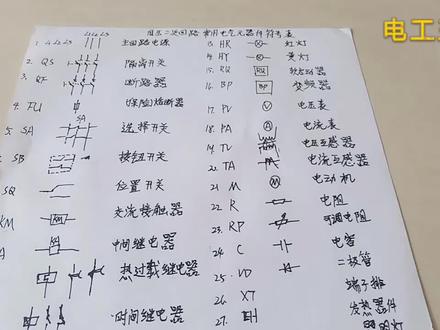 电工
低压二次回路常用电气元器件符号表
1. L1 L2 L3 主回路电源
2. QS 隔离开关
3. QF 断路器
4. FU 保险/熔断器
5. SA SA 选择开关
SB 按钮开关
SQ 位置开关
KM KM 交流接触器
A 中间继电器
热过载继电器
时间继电器
13 HR 红灯
14. HY 黄灯
15. RQ RQ 软启动器
16. BP BP 变频器
17. PV V 电压表
18. PA A 电流表
19. TV 电压互感器
20. TA 电流互感器
21. M M 电动机
22. R 电阻
23. RP 可调电阻
24. C 电容
25. VD 二极管
26. XT 端子排
27. EH 发热器件
照明灯